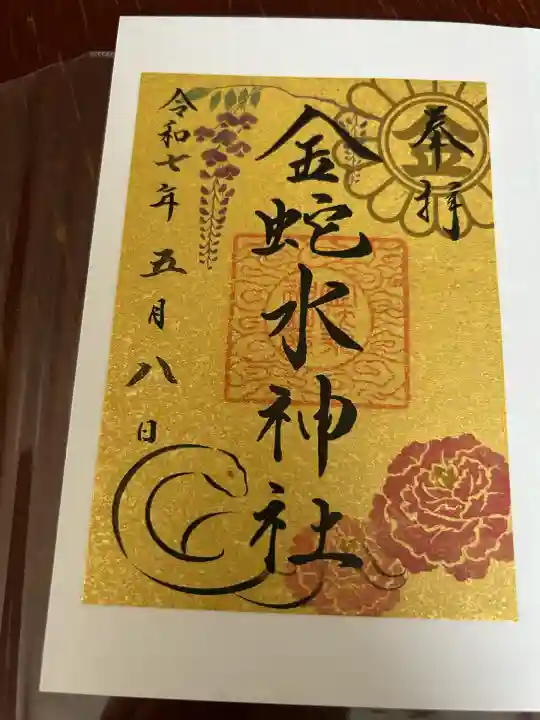 奉拝
金
金蛇水神社
令和七年五月八日